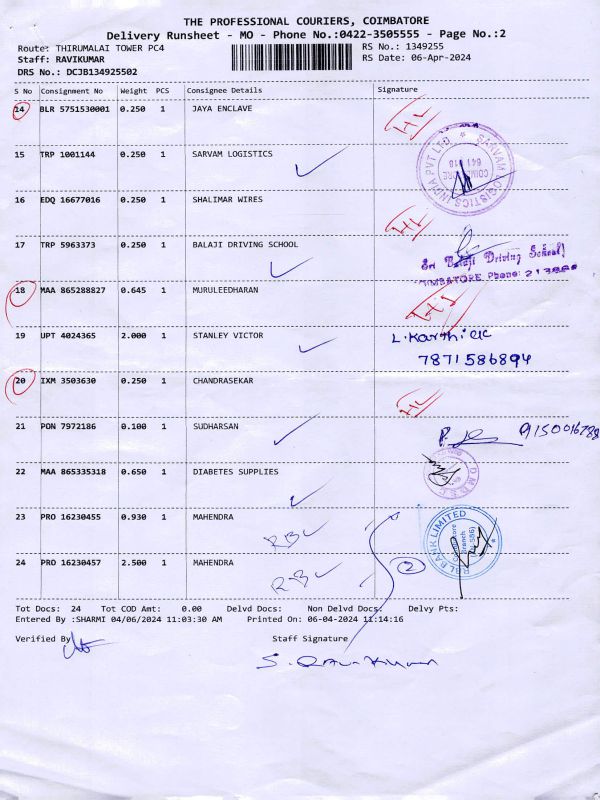 THE PROFESSIONAL COURIERS, COIMBATORE
Delivery Runsheet - MO - Phone No.:0422-3505555 - Page No.:2
Route: THIRUMALAI TOWER PC4 RS No.: 1349255
Staff: RAVIKUMAR RS Date: 06-Apr-2024
DRS No.: DCJB134925502
S No Consignment No Weight PCS Consignee Details Signature
14 BLR 5751530001 0.250 1 JAYA ENCLAVE
15 TRP 1001144 0.250 1 SARVAM LOGISTICS
SARVAM LOGISTICS INDIA PVT LTD.
COIMBATORE
16 EDQ 16677016 0.250 1 SHALIMAR WIRES
17 TRP 5963373 0.250 1 BALAJI DRIVING SCHOOL
Sri Balaji Driving School
COIMBATORE. Phone:
18 MAA 865288827 0.645 1 MURULEEDHARAN
19 UPT 4024365 2.000 1 STANLEY VICTOR L. Karthick
7871586894
20 IXM 3503630 0.250 1 CHANDRASEKAR
21 PON 7972186 0.100 1 SUDHARSAN
22 MAA 865335318 0.650 1 DIABETES SUPPLIES
23 PRO 16230455 0.930 1 MAHENDRA RBL
RBL BANK LIMITED
Coimbatore
Branch
24 PRO 16230457 2.500 1 MAHENDRA RBL 2
Tot Docs: 24 Tot COD Amt: 0.00 Delvd Docs: Non Delvd Docs: Delvy Pts:
Entered By :SHARMI 04/06/2024 11:03:30 AM Printed On: 06-04-2024 11:14:16
Verified By Staff Signature